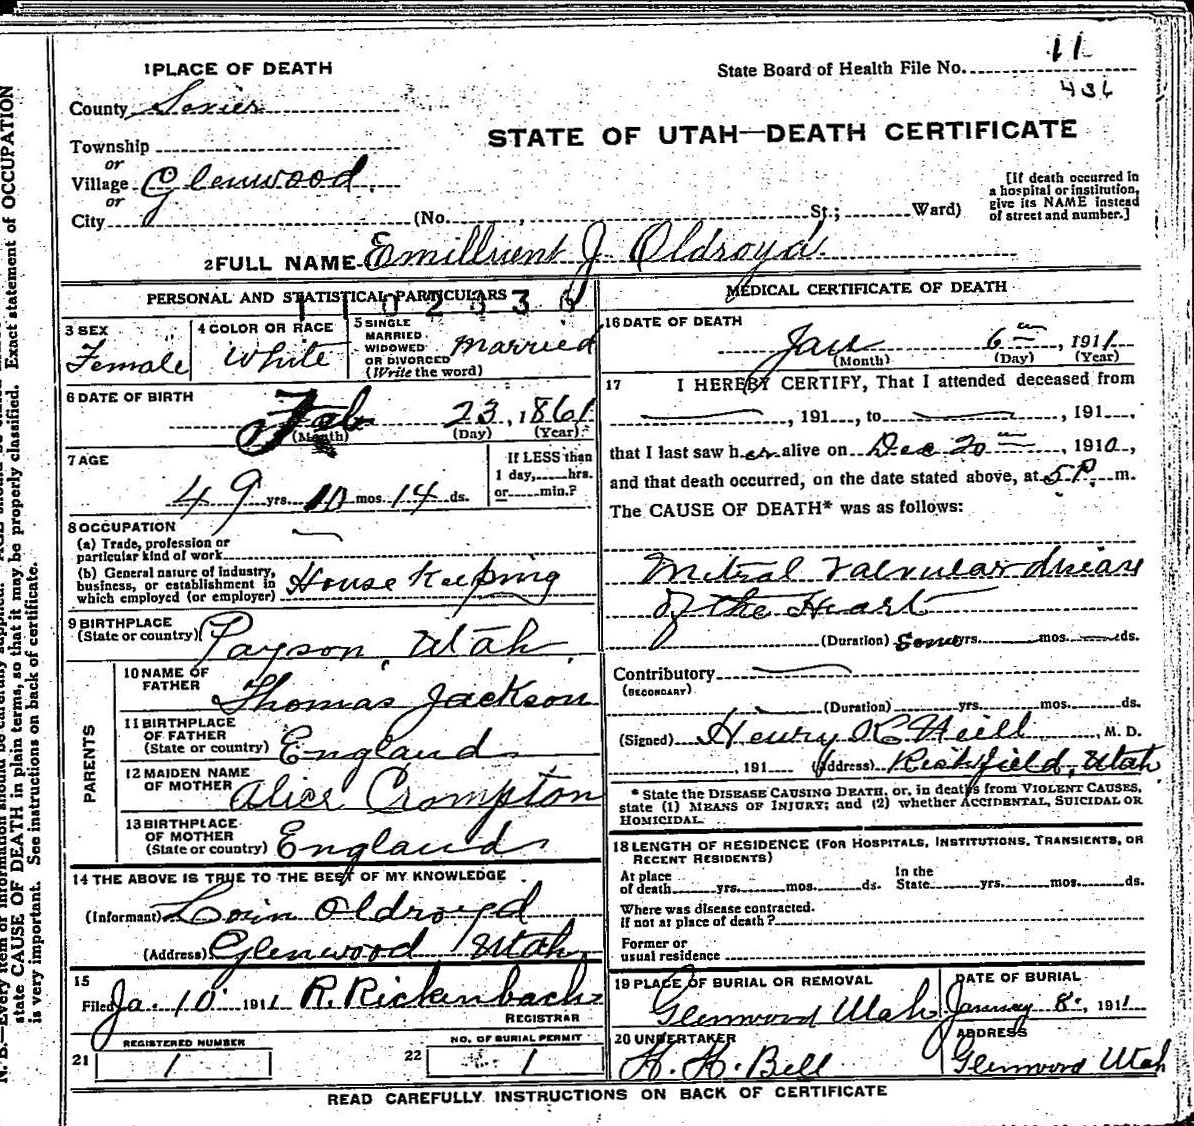 11
1 PLACE OF DEATH
State Board of Health File No.
436
County Sevier
STATE OF UTAH—DEATH CERTIFICATE
Township
or
Village Glenwood
or
City (No. , St.; Ward)
[If death occurred in
a hospital or institution,
give its NAME instead
of street and number.]
2 FULL NAME Emillient J. Oldroyd
PERSONAL AND STATISTICAL PARTICULARS
3 SEX
Female
4 COLOR OR RACE
White
5 SINGLE
MARRIED
WIDOWED
OR DIVORCED
(Write the word)
Married
6 DATE OF BIRTH
Feb 23, 1861
(Month) (Day) (Year)
7 AGE
49 yrs. 10 mos. 14 ds.
If LESS than
1 day, hrs.
or min.?
8 OCCUPATION
(a) Trade, profession or
particular kind of work
(b) General nature of industry,
business, or establishment in
which employed (or employer)
House Keeping
9 BIRTHPLACE
(State or country)
Payson, Utah
PARENTS
10 NAME OF
FATHER
Thomas Jackson
11 BIRTHPLACE
OF FATHER
(State or country)
England
12 MAIDEN NAME
OF MOTHER
Alice Crompton
13 BIRTHPLACE
OF MOTHER
(State or country)
England
14 THE ABOVE IS TRUE TO THE BEST OF MY KNOWLEDGE
(Informant) Orin Oldroyd
(Address) Glenwood Utah
15
Filed Ja. 10 1911 R. Rickenbach
REGISTRAR
21
REGISTERED NUMBER
1
22
NO. OF BURIAL PERMIT
1
MEDICAL CERTIFICATE OF DEATH
16 DATE OF DEATH
Jan 6th, 1911
(Month) (Day) (Year)
17 I HEREBY CERTIFY, That I attended deceased from
, 191 , to , 191 ,
that I last saw her alive on Dec 20th, 1910,
and that death occurred, on the date stated above, at 5 P. m.
The CAUSE OF DEATH* was as follows:
Mitral Valvular disease
of the Heart
(Duration) Some yrs. mos. ds.
Contributory
(SECONDARY)
(Duration) yrs. mos. ds.
(Signed) Henry K Neill, M. D.
, 191 (Address) Richfield, Utah
* State the DISEASE CAUSING DEATH, or, in deaths from VIOLENT CAUSES,
state (1) MEANS OF INJURY; and (2) whether ACCIDENTAL, SUICIDAL OR
HOMICIDAL.
18 LENGTH OF RESIDENCE (FOR HOSPITALS, INSTITUTIONS, TRANSIENTS, OR
RECENT RESIDENTS)
At place
of death yrs. mos. ds.
In the
State yrs. mos. ds.
Where was disease contracted.
if not at place of death?
Former or
usual residence
19 PLACE OF BURIAL OR REMOVAL
Glenwood Utah
DATE OF BURIAL
January 8, 1911
20 UNDERTAKER
H. H. Bell
ADDRESS
Glenwood Utah
READ CAREFULLY INSTRUCTIONS ON BACK OF CERTIFICATE
state CAUSE OF DEATH in plain terms, so that it may be properly classified. Exact statement of OCCUPATION
is very important. See instructions on back of certificate.